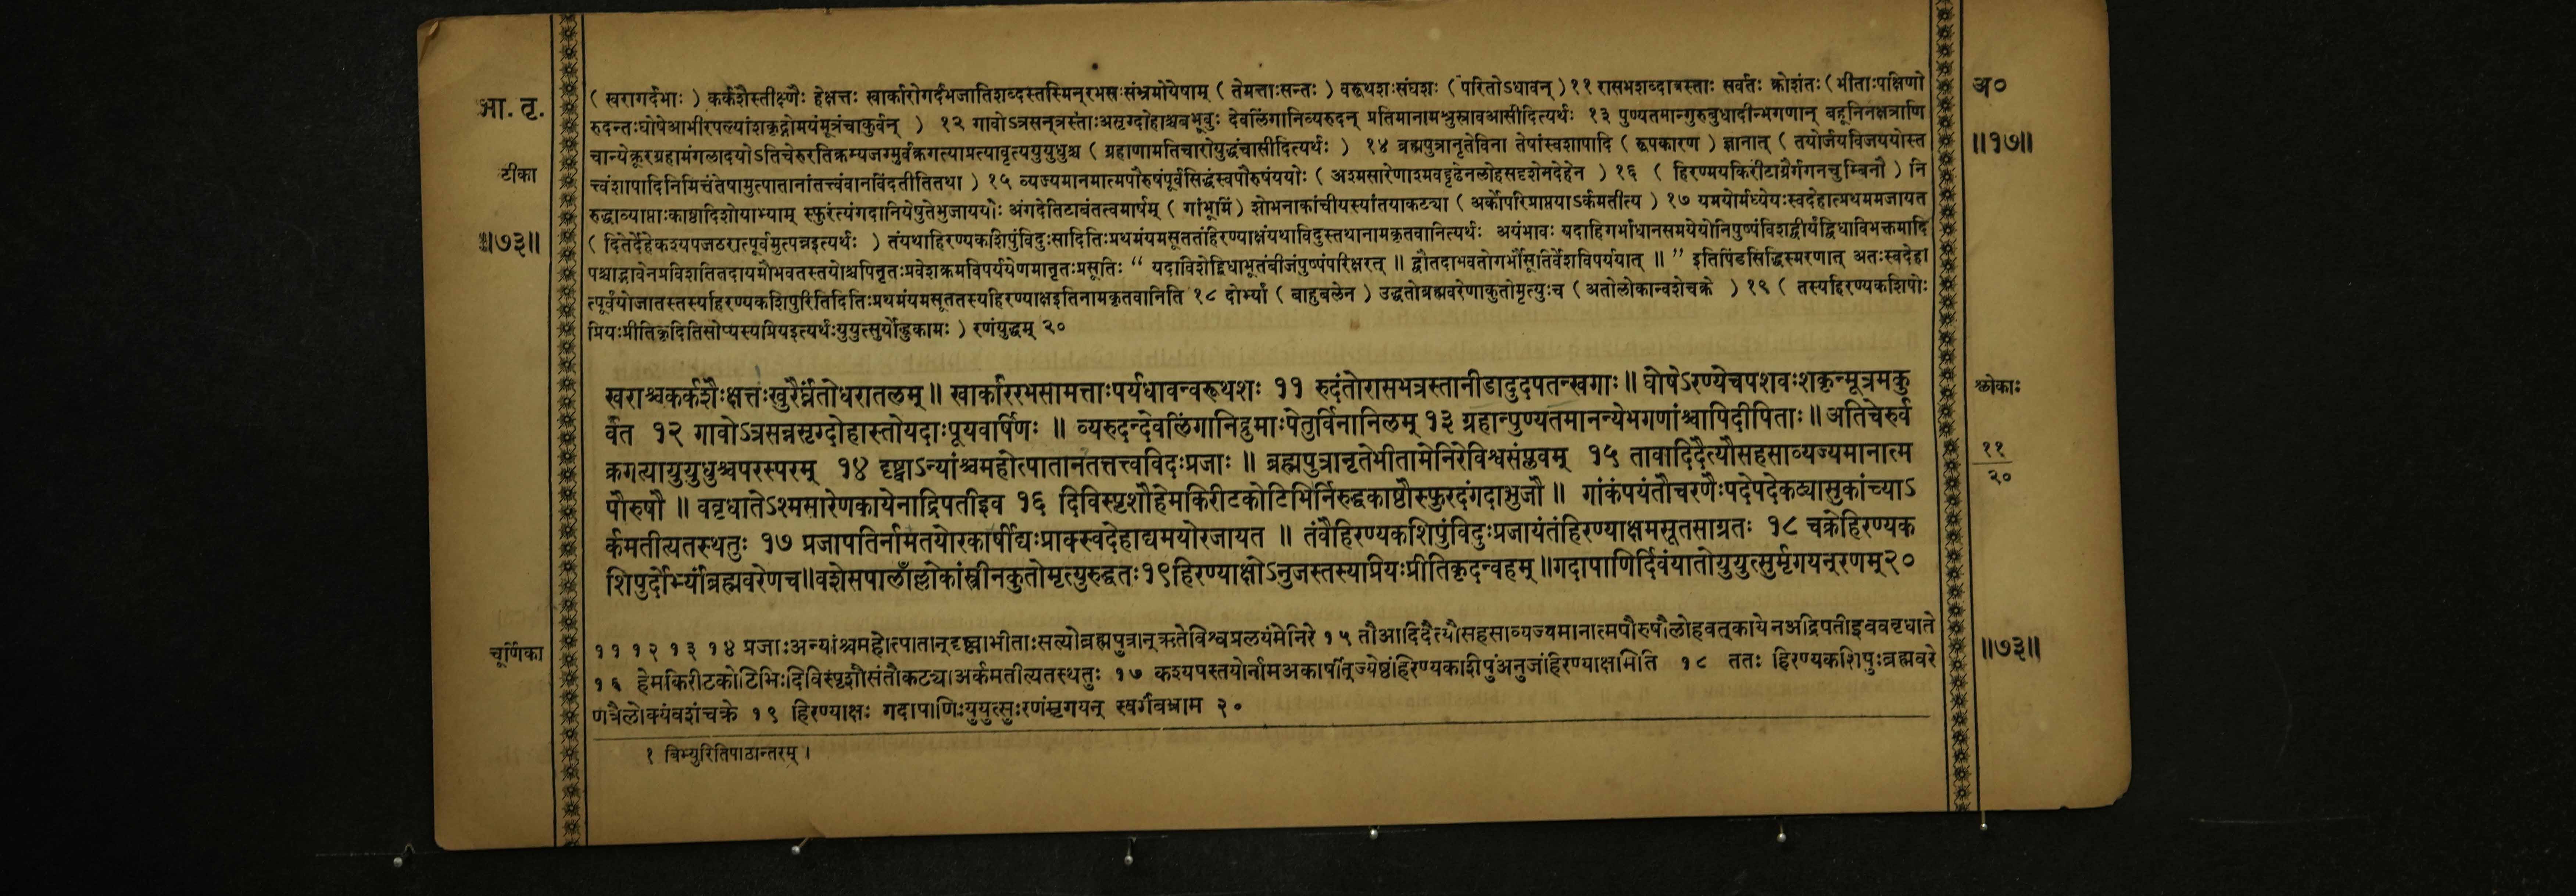 भा. तृ.
( खरागर्दभाः ) कर्कशैस्तीक्ष्णैः हेक्षत्तः खार्कारोगर्दभजातिशब्दस्तस्मिन्‌रभसःसंभ्रमोयेषाम् ( तेमत्ताःसन्तः ) वरूथशःसंघशः ( परितोऽधावन् ) ११ रासभशब्दात्रस्ताः सर्वतः क्रोशंतः ( भीताःपक्षिणो
अ०
रुदन्तःघोषेआभीरपल्यांशकृद्गोमयंमूत्रंचाकुर्वन् ) १२ गावोऽत्रसन्‌त्रस्ताःअसृग्दोहाश्चबभूवुः देवलिंगानिव्यरुदन् प्रतिमानामश्रुस्रावआसीदित्यर्थः १३ पुण्यतमान्गुरुबुधादीन्भगणान् बहूनिनक्षत्राणि
चान्येक्रूरग्रहामंगलादयोऽतिचेरुरतिक्रम्यजग्मुर्वक्रगत्याप्रत्यावृत्ययुयुधुश्च ( ग्रहाणामतिचारोयुद्धंचासीदित्यर्थः ) १४ ब्रह्मपुत्रानृतेविना तेषांस्वशापादि ( रूपकारण ) ज्ञानात् ( तयोर्जयविजययोस्त
॥१७॥
टीका
त्त्वंशापादिनिमित्तंतेषामुत्पातानांतत्त्वंवानविंदतीतितथा ) १५ व्यज्यमानमात्मपौरुषंपूर्वसिद्धंस्वपौरुषंययोः ( अश्मसारेणाश्मवद्दृढेनलोहसदृशेनदेहेन ) १६ ( हिरण्मयकिरीटाग्रैर्गगनचुम्बिनौ ) नि
रुद्धाव्याप्ताःकाष्ठादिशोयाभ्याम् स्फुरंत्यंगदानियेषुतेभुजाययोः अंगदेतिटाबंतत्वमार्षम् ( गांभूमिं ) शोभनाकांचीयस्यांतयाकट्या ( अर्कोपरिप्राप्तयाऽर्कमतीत्य ) १७ यमयोर्मध्येयःस्वदेहात्प्रथममजायत
॥७३॥
( दितेर्देहेकश्यपजठरात्पूर्वमुत्पन्नइत्यर्थः ) तंयथाहिरण्यकशिपुंविदुःसादितिःप्रथमंयमसूततंहिरण्याक्षंयथाविदुस्तथानामकृतवानित्यर्थः अयंभावः यदाहिगर्भाधानसमयेयोनिपुष्पंविशद्वीर्यंद्विधाविभक्तमादि
पश्चाद्भावेनप्रविशतितदायमौभवतस्तयोश्चपितृतःप्रवेशक्रमविपर्ययेणमातृतःप्रसूतिः “ यदाविशेद्द्विधाभूतंबीजंपुष्पंपरिक्षरत् ॥ द्वौतदाभवतोगर्भौसूतिर्वेशविपर्ययात् ॥ ” इतिपिंडसिद्धिस्मरणात् अतःस्वदेहा
त्पूर्वंयोजातस्तस्यहिरण्यकशिपुरितिदितिःप्रथमंयमसूततस्यहिरण्याक्षइतिनामकृतवानिति १८ दोर्भ्यां ( बाहुबलेन ) उद्धतोब्रह्मवरेणाकुतोमृत्युःच ( अतोलोकान्वशेचक्रे ) १९ ( तस्यहिरण्यकशिपोः
प्रियःप्रीतिकृदितिसोप्यस्यप्रियइत्यर्थःयुयुत्सुर्योद्धुकामः ) रणंयुद्धम् २०
खराश्चकर्कशैःक्षत्तःखुरैर्घ्नंतोधरातलम् ॥ खार्काररभसामत्ताःपर्यधावन्वरूथशः ११ रुदंतोरासभत्रस्तानीडादुदपतन्खगाः ॥ घोषेऽरण्येचपशवःशकृन्मूत्रमकु
श्लोकाः
र्वत १२ गावोऽत्रसन्नसृग्दोहास्तोयदाःपूयवर्षिणः ॥ व्यरुदन्देवलिंगानिद्रुमाःपेतुर्विनानिलम् १३ ग्रहान्पुण्यतमानन्येभगणांश्चापिदीपिताः ॥ अतिचेरुर्व
क्रगत्यायुयुधुश्चपरस्परम् १४ दृष्ट्वाऽन्यांश्चमहोत्पातानतत्तत्त्वविदःप्रजाः ॥ ब्रह्मपुत्रानृतेभीतामेनिरेविश्वसंप्लवम् १५ तावादिदैत्यौसहसाव्यज्यमानात्म
११
२०
पौरुषौ ॥ ववृधातेऽश्मसारेणकायेनाद्रिपतीइव १६ दिविस्पृशौहेमकिरीटकोटिभिर्निरुद्धकाष्ठौस्फुरदंगदाभुजौ ॥ गांकंपयंतौचरणैःपदेपदेकट्यासुकांच्याऽ
र्कमतीत्यतस्थतुः १७ प्रजापतिर्नामतयोरकार्षीद्यःप्राक्स्वदेहाद्यमयोरजायत ॥ तंवैहिरण्यकशिपुंविदुःप्रजायंतंहिरण्याक्षमसूतसाग्रतः १८ चक्रेहिरण्यक
शिपुर्दोर्भ्यांब्रह्मवरेणच॥वशेसपालाँल्लोकांस्त्रीनकुतोमृत्युरुद्धतः१९हिरण्याक्षोऽनुजस्तस्यप्रियःप्रीतिकृदन्वहम् ॥गदापाणिर्दिवंयातोयुयुत्सुर्मृगयन्‌रणम्२०
चूर्णिका
११ १२ १३ १४ प्रजाःअन्यांश्चमहोत्पातान्‌दृष्ट्वाभीताःसत्योब्रह्मपुत्रान्‌ऋतेविश्वप्रलयंमेनिरे १५ तौआदिदैत्यौसहसाव्यज्यमानात्मपौरुषौलोहवत्‌कायेनअद्रिपतीइवववृधाते
॥७३॥
१६ हेमकिरीटकोटिभिःदिविस्पृशौसंतौकट्याअर्कमतीत्यतस्थतुः १७ कश्यपस्तयोर्नामअकार्षीत्‌ज्येष्ठंहिरण्यकशिपुंअनुजंहिरण्याक्षमिति १८ ततः हिरण्यकशिपुःब्रह्मवरे
णत्रैलोक्यंवशंचक्रे १९ हिरण्याक्षः गदापाणिःयुयुत्सुःरणंमृगयन् स्वर्गंबभ्राम २०
१ बिभ्युरितिपाठान्तरम् ।